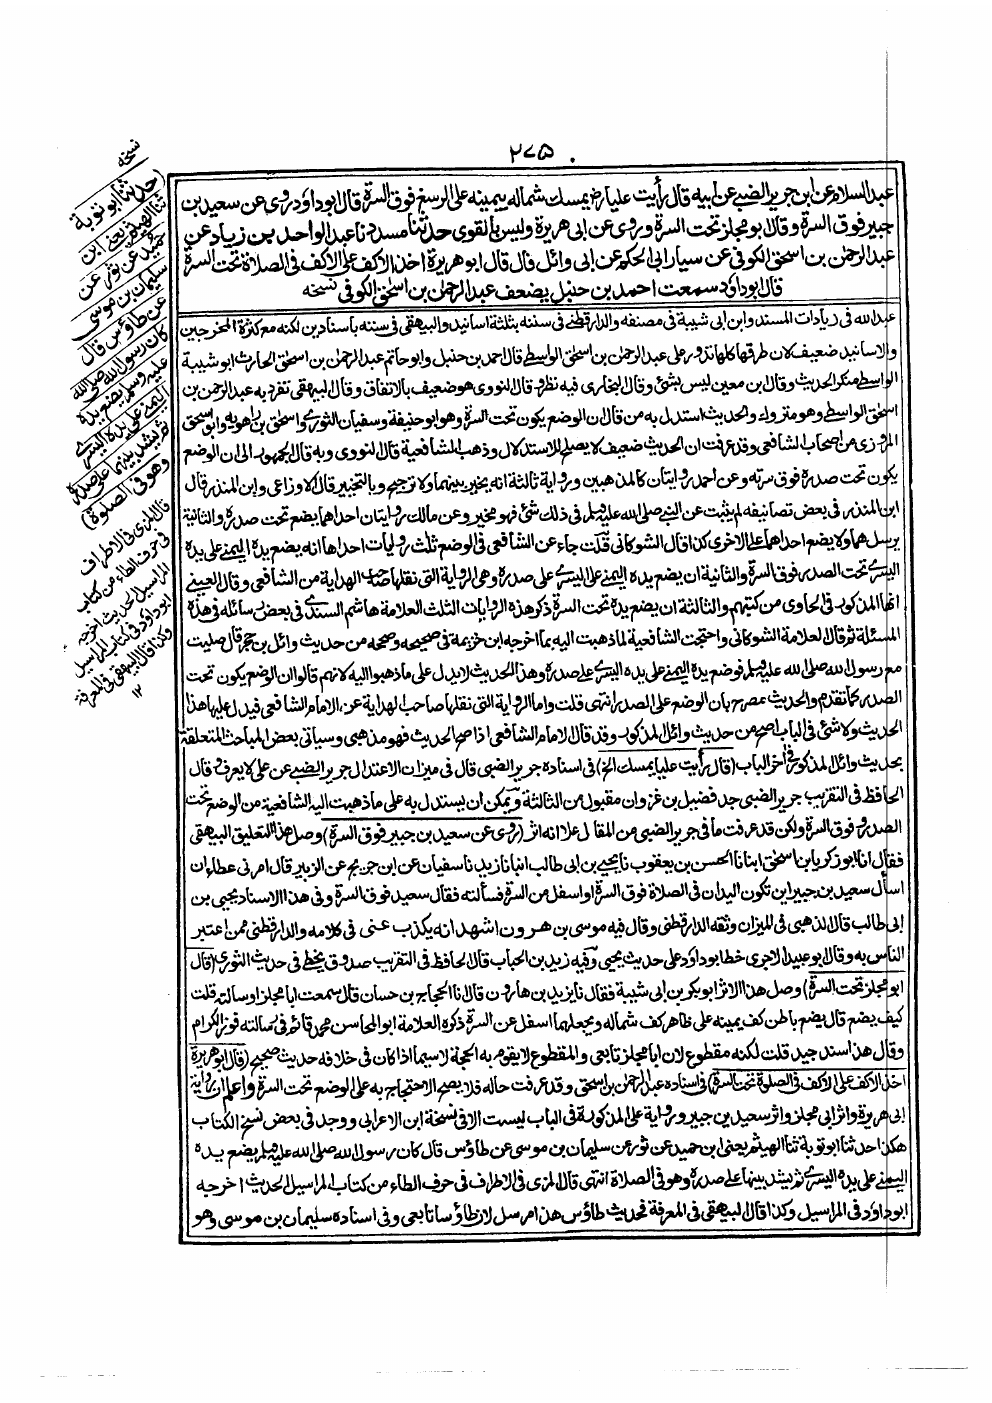 ٢٧٥
عبد السلام عن ابن جرير الضبي عن ابيه قال رأيت عليا رض يمسك شماله بيمينه على الرسغ فوق السرة قال ابو داؤد وروى عن سعيد بن
جبير فوق السرة وقال ابو مجلز تحت السرة وروى عن ابى هريرة وليس بالقوى حدثنا مسدد نا عبد الواحد بن زياد عن
عبد الرحمٰن بن اسحٰق الكوفى عن سيار ابى الحكم عن ابى وائل قال قال ابو هريرة اخذ الاكف على الاكف فى الصلاة تحت السرة
قال ابو داؤد سمعت احمد بن حنبل يضعف عبد الرحمٰن بن اسحٰق الكوفى نسخه
عبد الله فى زيادات المسند وابن ابى شيبة فى مصنفه والدارقطنى فى سننه بثلثة اسانيد والبيهقى فى سننه باسنادين لكنه مع كثرة المخرجين
والاسانيد ضعيف لان طرقها كلها تدور على عبد الرحمٰن بن اسحٰق الواسطى قال احمد بن حنبل وابو حاتم عبد الرحمٰن بن اسحٰق الحارث ابو شيبة
الواسطى منكر الحديث وقال ابن معين ليس بشئ وقال البخارى فيه نظر وقال النووى هو ضعيف بالاتفاق وقال البيهقى تفرد به عبد الرحمٰن بن
اسحٰق الواسطى وهو متروك والحديث استدل به من قال ان الوضع يكون تحت السرة وهو ابو حنيفة وسفيان الثورى واسحٰق بن راهويه وابو اسحٰق
المروزى من اصحاب الشافعى وقد عرفت ان الحديث ضعيف لا يصلح للاستدلال وذهب الشافعية قال النووى وبه قال الجمهور الى ان الوضع
يكون تحت صدره فوق سرته وعن احمد روايتان كالمذهبين ورواية ثالثة انه يخير بينهما ولا ترجيح وبالتخيير قال الاوزاعى وابن المنذر قال
ابن المنذر فى بعض تصانيفه لم يثبت عن النبى صلى الله عليه وسلم فى ذلك شئ فهو مخير وعن مالك روايتان احداهما يضع تحت صدره والثانية
يرسلهما ولا يضع احداهما على الاخرى كذا قال الشوكانى قلت جاء عن الشافعى فى الوضع ثلث روايات احداها انه يضع يده اليمنى على يده
اليسرى تحت الصدر فوق السرة والثانية ان يضع يده اليمنى على اليسرى على صدره وهى الرواية التى نقلها صاحب الهداية من الشافعى وقال العينى
انها المذكور فى الحاوى من كتبهم والثالثة ان يضع يده تحت السرة ذكر هذه الروايات الثلث العلامة هاشم السندى فى بعض رسائله فى هذه
المسئلة ثم قال العلامة الشوكانى واحتجت الشافعية لما ذهبت اليه بما اخرجه ابن خزيمة فى صحيحه وصححه من حديث وائل بن حجر قال صليت
مع رسول الله صلى الله عليه وسلم فوضع يده اليمنى على يده اليسرى على صدره وهذا الحديث لا يدل على ما ذهبوا اليه لانهم قالوا ان الوضع يكون تحت
الصدر كما تقدم والحديث مصرح بان الوضع على الصدر انتهى قلت واما الرواية التى نقلها صاحب الهداية عن الامام الشافعى فيدل عليها هذا
الحديث ولا شئ فى الباب اصح من حديث وائل المذكور وقد قال الامام الشافعى اذا صح الحديث فهو مذهبى وسياتى بعض المباحث المتعلقة
بحديث وائل المذكور فى اٰخر الباب (قال رأيت عليا يمسك الخ) فى اسناده جرير الضبى قال فى ميزان الاعتدال جرير الضبى عن على لا يعرف وقال
الحافظ فى التقريب جرير الضبى جد فضيل بن غزوان مقبول من الثالثة ويمكن ان يستدل به على ما ذهبت اليه الشافعية من الوضع تحت
الصدر وفوق السرة ولكن قد عرفت ما فى جرير الضبى من المقال على انه اثر (وروى عن سعيد بن جبير فوق السرة) وصل هذا التعليق البيهقى
فقال انا ابو زكريا بن اسحٰق انبانا الحسن بن يعقوب نا يحيى بن ابى طالب انبا نا زيد نا سفيان عن ابن جريج عن الزبير قال امرنى عطاء ان
اسأل سعيد بن جبير اين تكون اليدان فى الصلاة فوق السرة او اسفل من السرة فسألته فقال سعيد فوق السرة وفى هذا الاسناد يحيى بن
ابى طالب قال الذهبى فى الميزان وثقه الدارقطنى وقال فيه موسى بن هرون اشهد انه يكذب عنى فى كلامه والدارقطنى ممن اعتبر
الناس به وقال ابو عبيد الاجرى خطا ابو داؤد على حديث يحيى وفيه زيد بن الحباب قال الحافظ فى التقريب صدوق يخطئ فى حديث الثورى (قال
ابو مجلز تحت السرة) وصل هذا الاثر ابو بكر بن ابى شيبة فقال نا يزيد بن هارون قال نا الحجاج بن حسان قال سمعت ابا مجلز او سالته قلت
كيف يضع قال يضع باطن كف يمينه على ظاهر كف شماله ويجعلهما اسفل عن السرة ذكره العلامة ابو المحاسن محمد قائم فى رسالته فوز الكرام
وقال هذا سند جيد قلت لكنه مقطوع لان ابا مجلز تابعى والمقطوع لا يقوم به الحجة لا سيما اذا كان فى خلافه حديث صحيح (قال ابو هريرة
اخذ الاكف على الاكف فى الصلوة تحت السرة) فى اسناده عبد الرحمٰن بن اسحٰق وقد عرفت حاله فلا يصح الاحتجاج به على الوضع تحت السرة واعلم ان رواية
ابى هريرة واثر ابى مجلز واثر سعيد بن جبير ورواية على المذكورة فى الباب ليست الا فى نسخة ابن الاعرابى ووجد فى بعض نسخ الكتاب
هكذا حدثنا ابو توبة ثنا الهيثم يعنى ابن حميد عن ثور عن سليمان بن موسى عن طاؤس قال كان رسول الله صلى الله عليه وسلم يضع يده
اليمنى على يده اليسرى ثم يشد بينهما على صدره وهو فى الصلاة انتهى قال المزى فى الاطراف فى حرف الطاء من كتاب المراسيل الحديث اخرجه
ابو داؤد فى المراسيل وكذا قال البيهقى فى المعرفة فحديث طاؤس هذا مرسل لان طاؤسا تابعى وفى اسناده سليمان بن موسى وهو
نسخه
(حدثنا ابو توبة
ثنا الهيثم يعنى ابن
حميد عن ثور عن
سليمان بن موسى
عن طاؤس قال
كان رسول الله صلى الله
عليه وسلم يضع يده
اليمنى على يده اليسرى
ثم يشد بينهما على صدره
وهو فى الصلوة)
قال المزى فى الاطراف
فى حرف الطاء من كتاب
المراسيل الحديث اخرجه
ابو داؤد فى كتاب المراسيل
وكذا قال البيهقى فى المعرفة
١٢